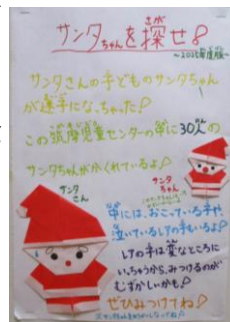 サンタちゃんを探せ!
サンタさんの子どものサンタちゃん
が迷子になっちゃった!
この筑摩児童センターの中に30人の
サンタちゃんがかくれているよ!
サンタ
さん
サンタ
ちゃん
中には、おこっている子や、
泣いているレアの子もいるよ!
レアの子は変なところに
いっちゃうから、みつけるのが
むずかしいかも!
ぜひみつけてね!